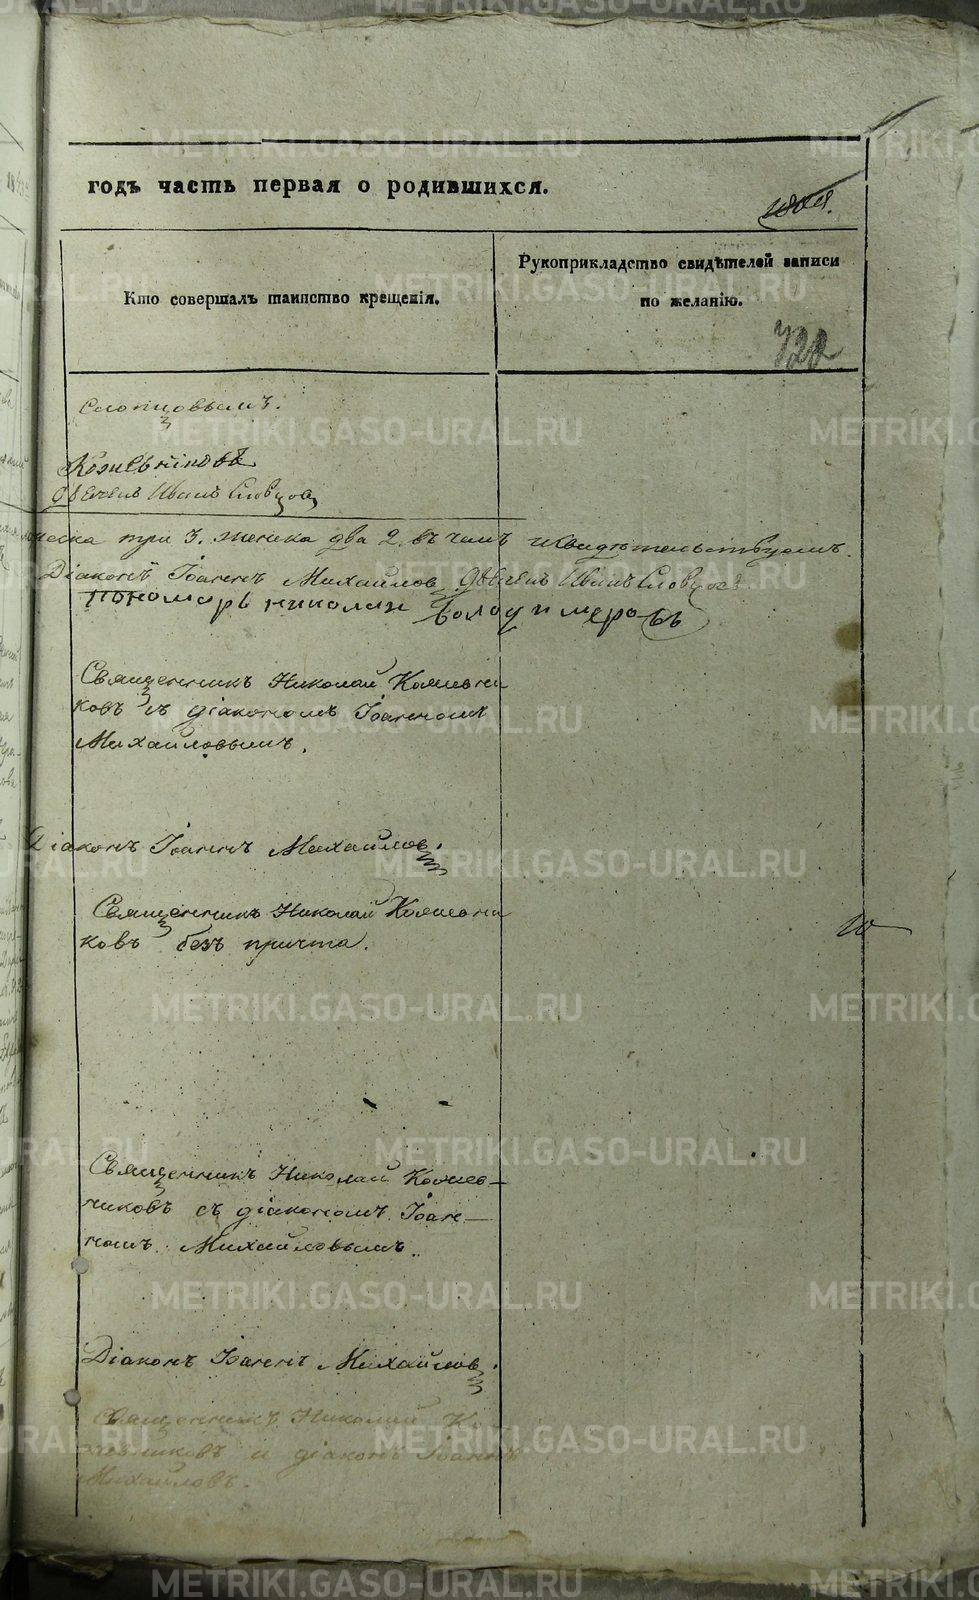 годъ часть первая о родившихся.
Кто совершалъ таинство крещенія.
Рукоприкладство свидѣтелей записи
по желанію.
722
Словцовымъ.
Кожевниковъ
дьячекъ Иванъ Словцовъ
мужеска три 3. женска два 2. въ чемъ и свидѣтельствуемъ.
Діаконъ Іоаннъ Михайлов дьячекъ Иванъ Словцовъ
пономарь николаи володимеровъ
Священникъ Николай Кожевни
ковъ съ діакономъ Іоанномъ
Михайловымъ.
Діаконъ Іоаннъ Михайловъ.
Священникъ Николай Кожевни
ковъ безъ причта.
Священникъ Николай Кожев-
никовъ съ діакономъ Іоан-
номъ Михайловымъ.
Діаконъ Іоаннъ Михайловъ.
Священникъ Николай Ко
жевниковъ и діаконъ Іоаннъ
Михайловъ.
METRIKI.GASO-URAL.RU